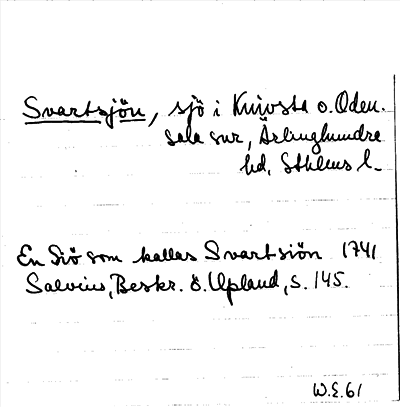 Svartsjön, sjö i Knivsta o. Oden-
sala snr, Ärlinghundra
hd, Sthlms l.
En Siö som kallas Svartsiön 1741
Salvius, Beskr. ö. Upland, s. 145.
W.E. 61